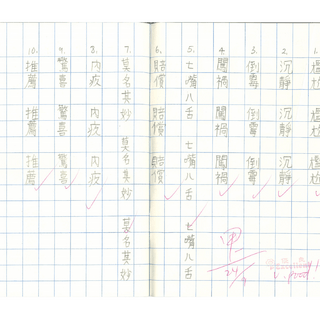 1. 尷尬 尷尬 尷尬
2. 沉靜 沉靜 沉靜
3. 倒霉 倒霉 倒霉
4. 闖禍 闖禍 闖禍
5. 七嘴八舌 七嘴八舌 七嘴八舌
6. 賠償 賠償 賠償
7. 莫名其妙 莫名其妙 莫名其妙
8. 內疚 內疚 內疚
9. 驚喜 驚喜 驚喜
10. 推薦 推薦 推薦
甲
24/9
v. good!